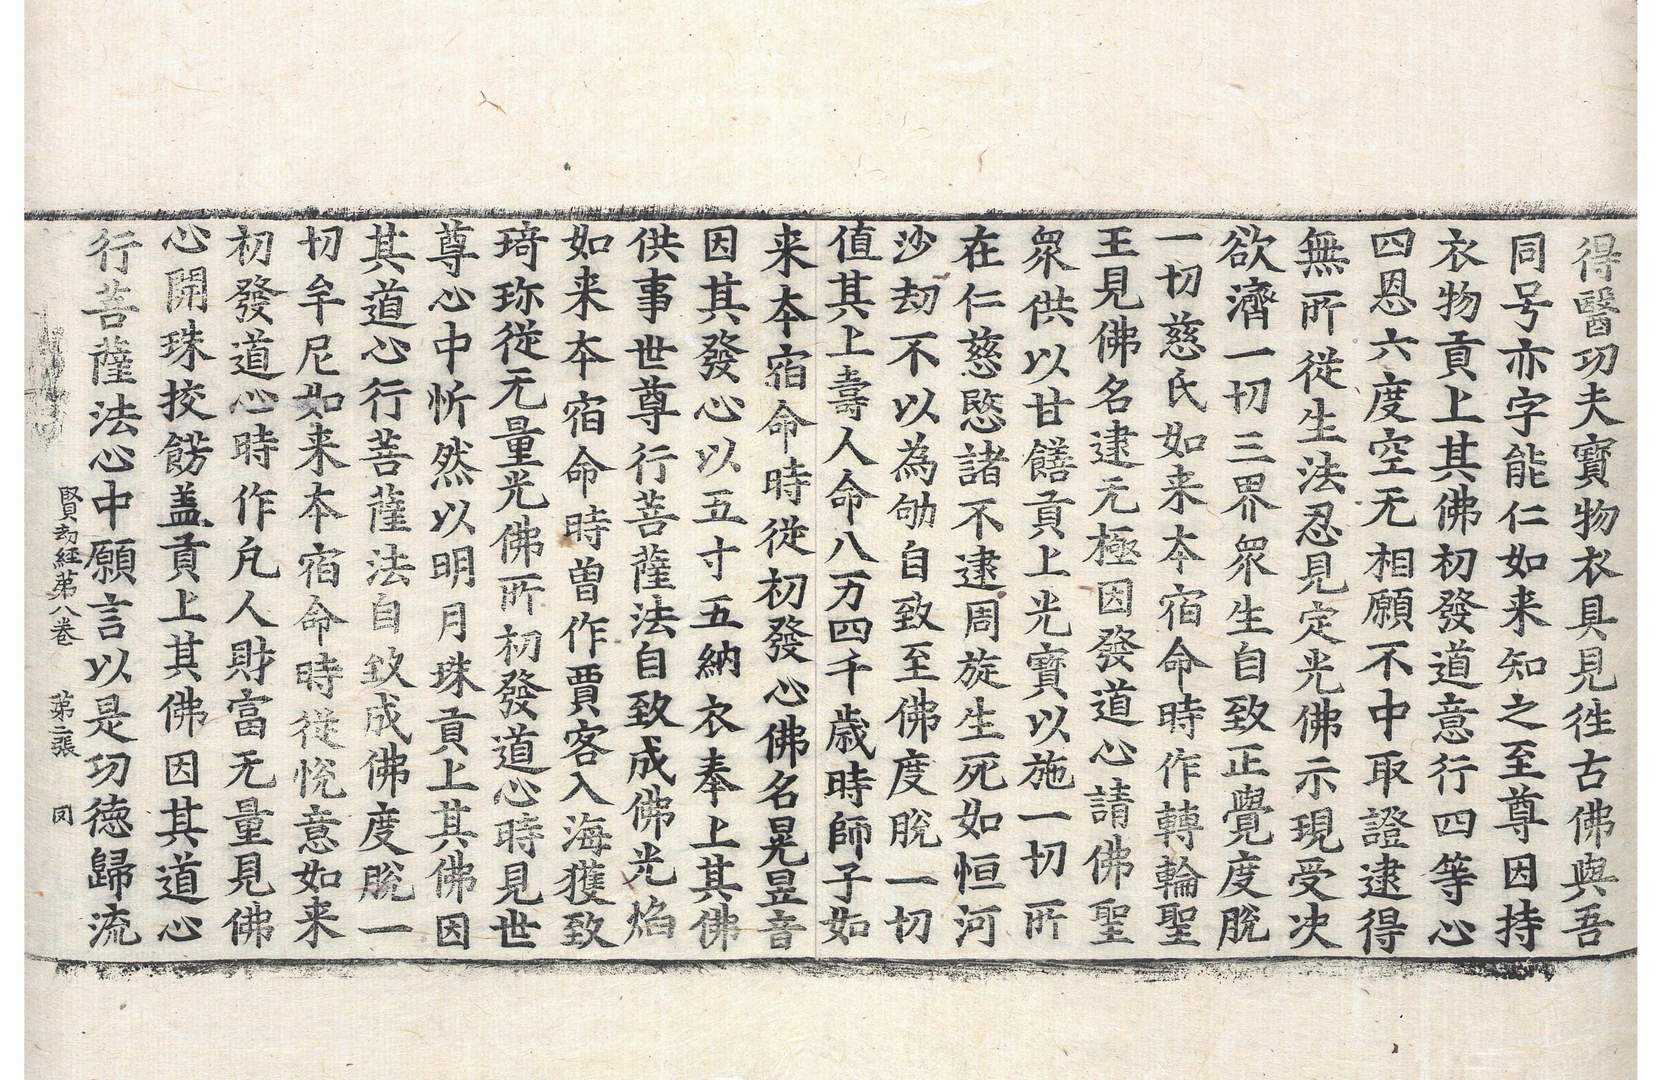 得醫功夫寶物衣具見徃古佛與吾
同号亦字能仁如来知之至尊因持
衣物貢上其佛初發道意行四等心
四恩六度空无相願不中取證逮得
無所從生法忍見定光佛示現受决
欲濟一切三界衆生自致正覺度脫
一切慈氏如来夲宿命時作轉輪聖
王見佛名逮无極因發道心請佛聖
衆供以甘饍貢上光寶以施一切所
在仁慈愍諸不逮周旋生死如恒河
沙劫不以為劬自致至佛度脫一切
值其上壽人命八万四千歲時師子如
来夲宿命時從初發心佛名晃昱音
因其發心以五寸五納衣奉上其佛
供事世尊行菩薩法自致成佛光焰
如来夲宿命時曽作賈客入海獲致
琦珎從无量光佛所初發道心時見世
尊心中忻然以明月珠貢上其佛因
其道心行菩薩法自致成佛度脫一
切牟尼如来夲宿命時從恱意如来
初發道心時作凡人財富无量見佛
心開珠挍餝盖貢上其佛因其道心
行菩薩法心中願言以是功德歸流
賢劫經第八卷 第二張 罔